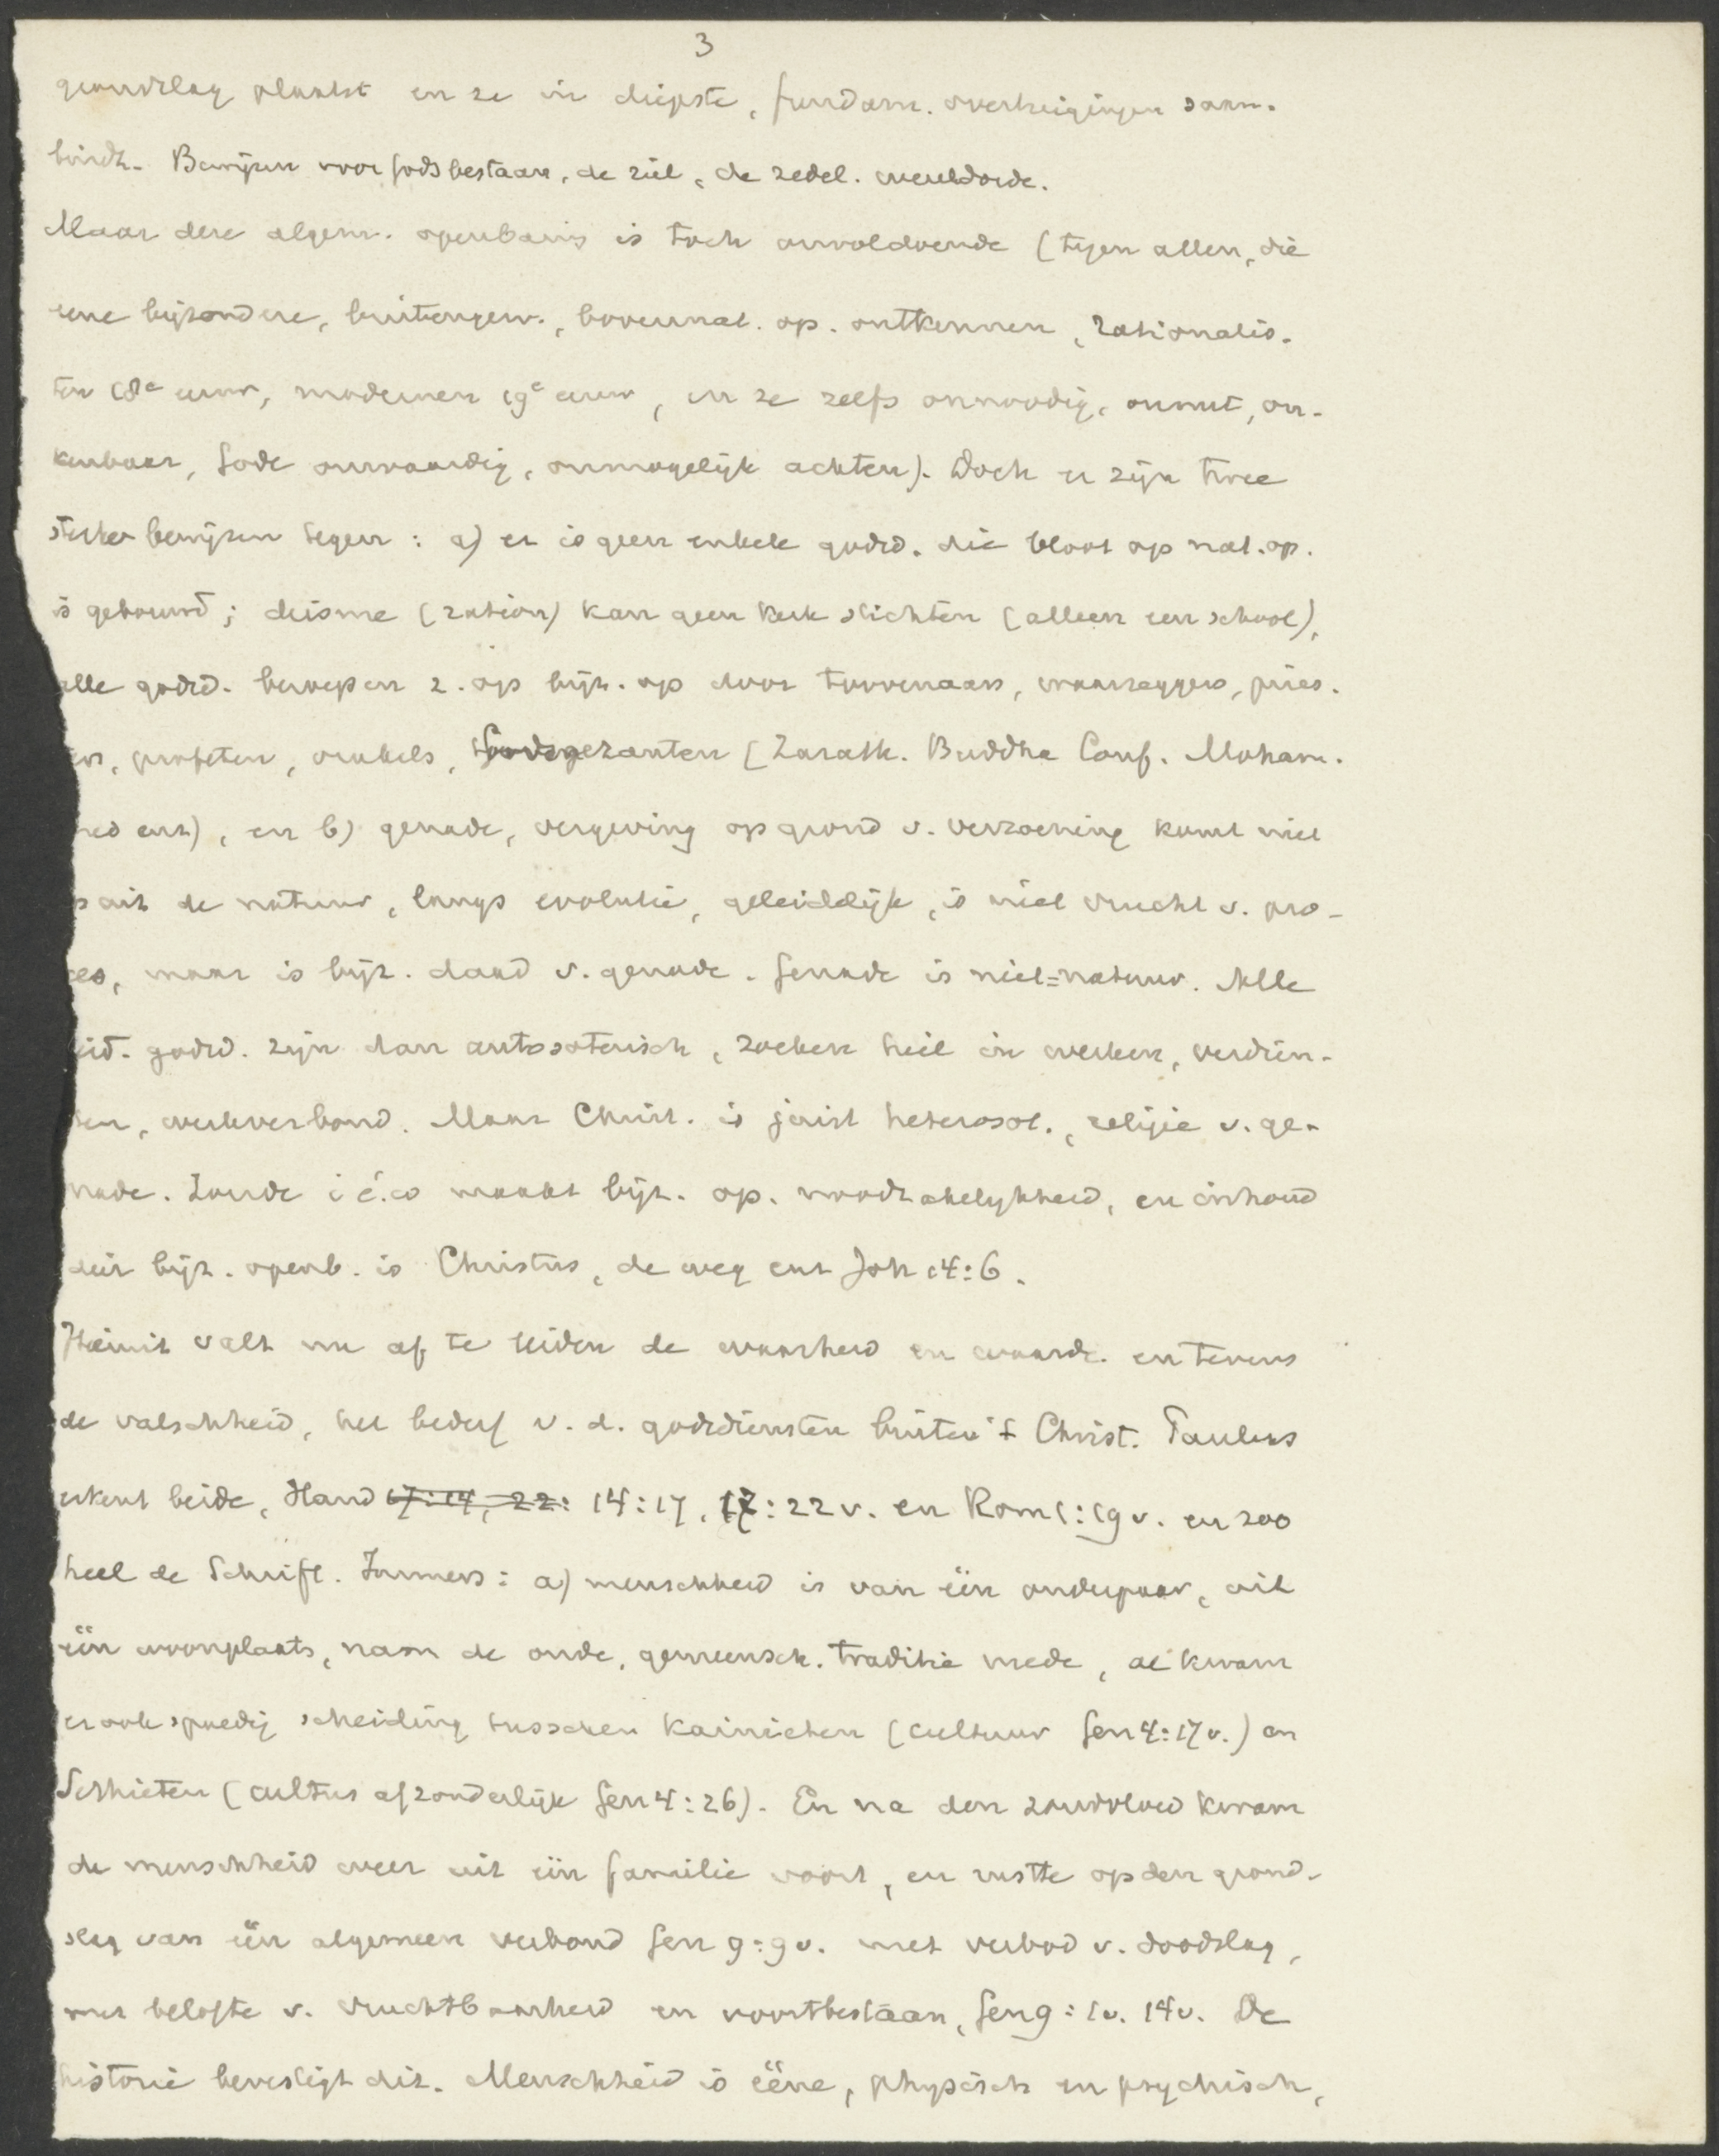 3
grondslag plaatst en ze in diepste, fundam. overtuigingen saam-
bindt. Bewijzen voor Gods bestaan, de ziel, de zedel. wereldorde.
Maar deze algem. openbaring is toch onvoldoende (tegen allen, die
eene bijzondere, buitengew., bovennat. op. ontkennen, rationalis-
ten 18e eeuw, modernen 19e eeuw, en ze zelfs onnoodig, onnut, on-
kenbaar, Gode onwaardig, onmogelijk achten). Doch er zijn twee
sterke bewijzen tegen: a) er is geen enkele godsd. die bloot op nat. op.
is gebouwd; deisme (ration) kan geen kerk stichten (alleen een school),
alle godsd. beroepen z. op bijz. op door toovenaars, waarzeggers, pries-
ers, profeten, orakels, Godsgezanten (Zarath. Buddha Conf. Moham-
med enz), en b) genade, vergeving op grond v. verzoening komt niet
op uit de natuur, langs evolutie, geleidelijk, is niet vrucht v. pro-
ces, maar is bijz. daad v. genade. Genade is niet=natuur. Alle
heid. godsd. zijn dan autosoterisch, zoeken heil in werken, verdien-
sten, werkverbond. Maar Christ. is juist heterosot., religie v. ge-
nade. Zonde i é.w maakt bijz. op. noodzakelijkheid, en inhoud
dier bijz. openb. is Christus, de weg enz Joh 14:6.
Hieruit valt nu af te leiden de waarheid en waarde. en tevens
de valschheid, het bederf v. d. godsdiensten buiten 't Christ. Paulus
erkent beide, Hand 17:14, 22: 14:17, 17:22v. en Rom 1:19v. en zoo
heel de Schrift. Immers: a) menschheid is van één ouderpaar, uit
één woonplaats, nam de oude, gemeensch. traditie mede, al kwam
er ook spoedig scheiding tusschen Kainieten (cultuur Gen 4:17v.) en
Sethieten (cultus afzonderlijk Gen 4:26). En na den zondvloed kwam
de menschheid weer uit één familie voort, en rustte op den grond-
slag van één algemeen verbond Gen 9:9v. met verbod v. doodslag,
met belofte v. vruchtbaarheid en voortbestaan, Gen 9:1v. 14v. De
historie bevestigt dit. Menschheid is ééne, physisch en psychisch,